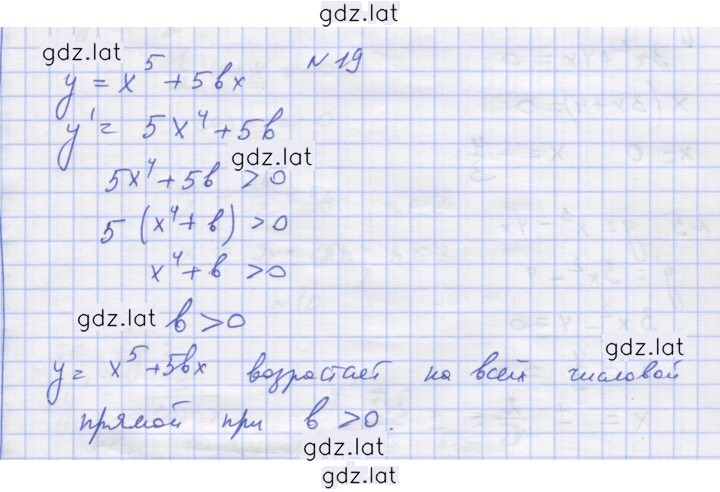 gdz.lat
gdz.lat
№ 19
y = x⁵ + 5вx
y' = 5x⁴ + 5в
gdz.lat
5x⁴ + 5в > 0
5 (x⁴ + в) > 0
x⁴ + в > 0
gdz.lat
в > 0
gdz.lat
y = x⁵ + 5вx возрастает на всей числовой
прямой при в > 0.
gdz.lat
gdz.lat